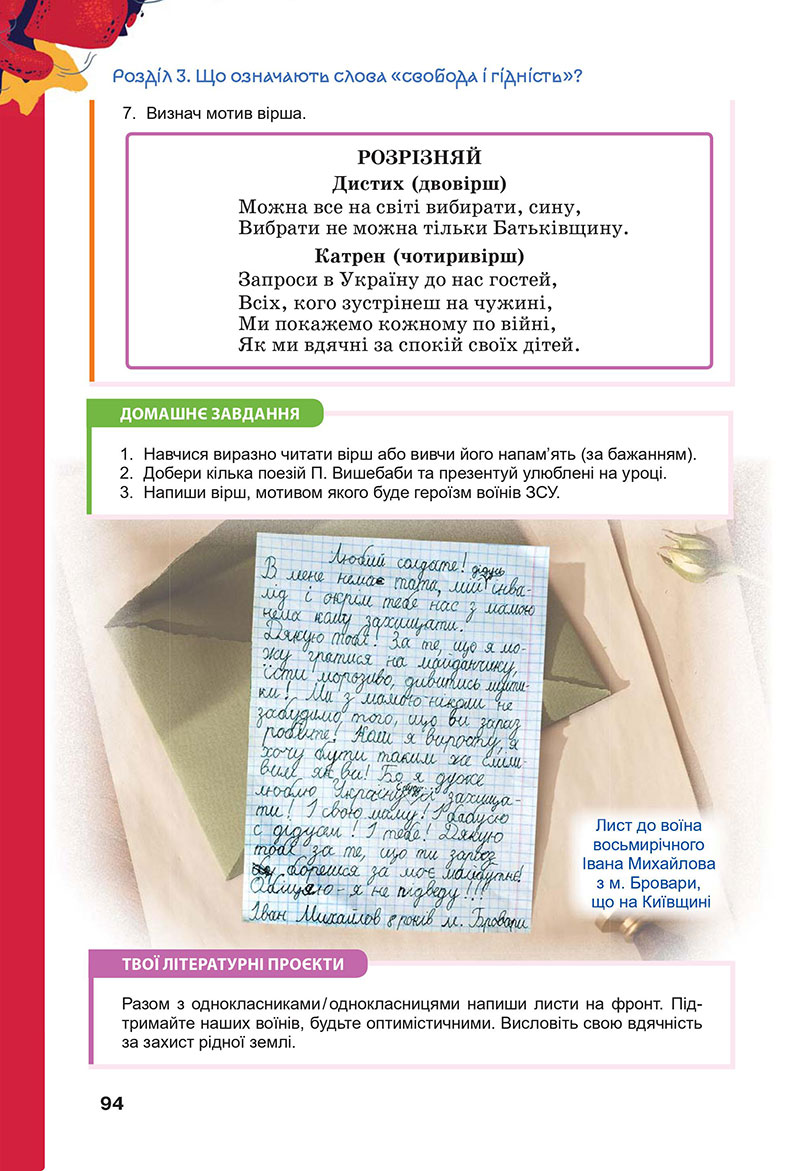 Розділ 3. Що означають слова «свобода і гідність»?
7. Визнач мотив вірша.
РОЗРІЗНЯЙ
Дистих (двовірш)
Можна все на світі вибирати, сину,
Вибрати не можна тільки Батьківщину.
Катрен (чотиривірш)
Запроси в Україну до нас гостей,
Всіх, кого зустрінеш на чужині,
Ми покажемо кожному по війні,
Як ми вдячні за спокій своїх дітей.
ДОМАШНЄ ЗАВДАННЯ
1. Навчися виразно читати вірш або вивчи його напам’ять (за бажанням).
2. Добери кілька поезій П. Вишебаби та презентуй улюблені на уроці.
3. Напиши вірш, мотивом якого буде героїзм воїнів ЗСУ.
Любий солдате!
В мене немає тата, мій дідусь інва-
лід і окрім тебе нас з мамою
нема кому захищати.
Дякую тобі! За те, що я мо-
жу гратися на майданчику,
їсти морозиво, дивитись мульти-
ки! Ми з мамою ніколи не
забудимо того, що ви зараз
робите! Коли я виросту, я
хочу бути таким же сміли-
вим як ви! Бо я дуже
люблю Україну буду її захища-
ти! І свою маму! І бабусю
с дідусем! І тебе! Дякую
тобі за те, що ти зараз
борешся за моє майбутнє!
Обіцяю - я не підведу!!!
Іван Михайлов 8 років м. Бровари
Лист до воїна
восьмирічного
Івана Михайлова
з м. Бровари,
що на Київщині
ТВОЇ ЛІТЕРАТУРНІ ПРОЄКТИ
Разом з однокласниками/однокласницями напиши листи на фронт. Під-
тримайте наших воїнів, будьте оптимістичними. Висловіть свою вдячність
за захист рідної землі.
94